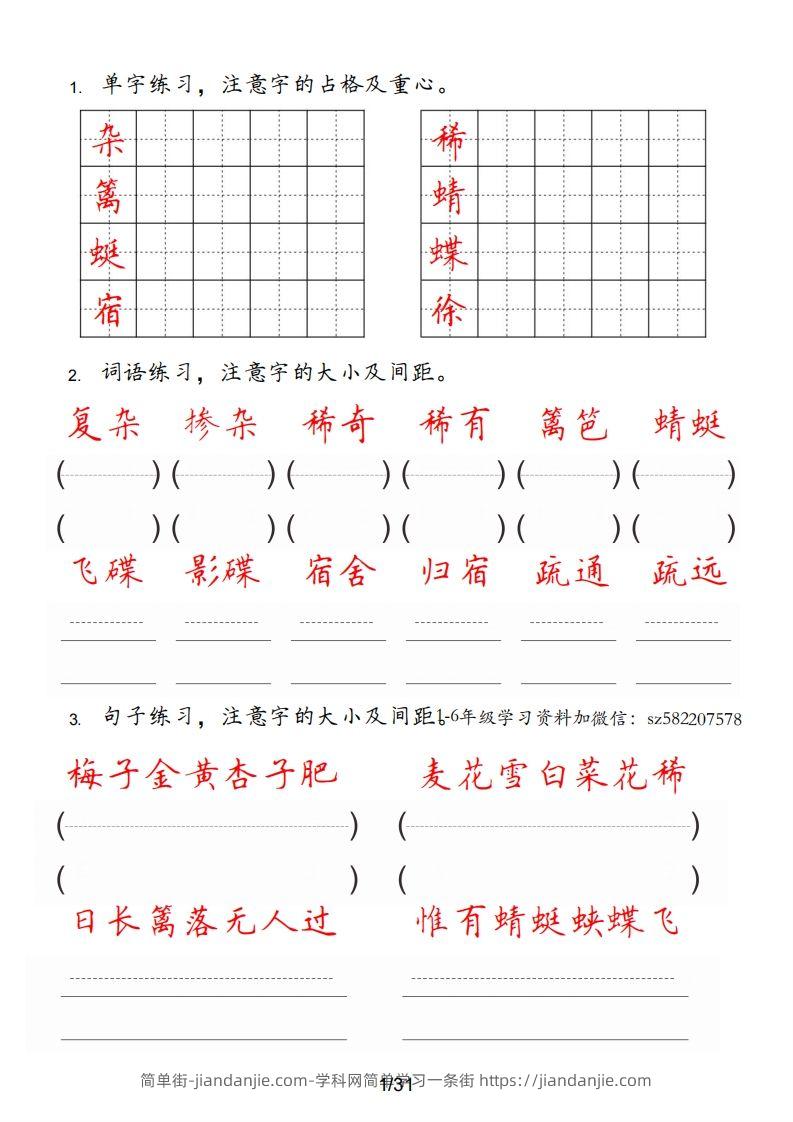 1. 单字练习，注意字的占格及重心。
杂 稀
篱 蜻
蜓 蝶
宿 徐
2. 词语练习，注意字的大小及间距。
复杂 掺杂 稀奇 稀有 篱笆 蜻蜓
( ) ( ) ( ) ( ) ( ) ( )
( ) ( ) ( ) ( ) ( ) ( )
飞碟 影碟 宿舍 归宿 疏通 疏远
3. 句子练习，注意字的大小及间距。1-6年级学习资料加微信：sz582207578
梅子金黄杏子肥 麦花雪白菜花稀
( ) ( )
( ) ( )
日长篱落无人过 惟有蜻蜓蛱蝶飞
简单街-jiandanjie.com-学科网简单学习一条街 https://jiandanjie.com
1/31